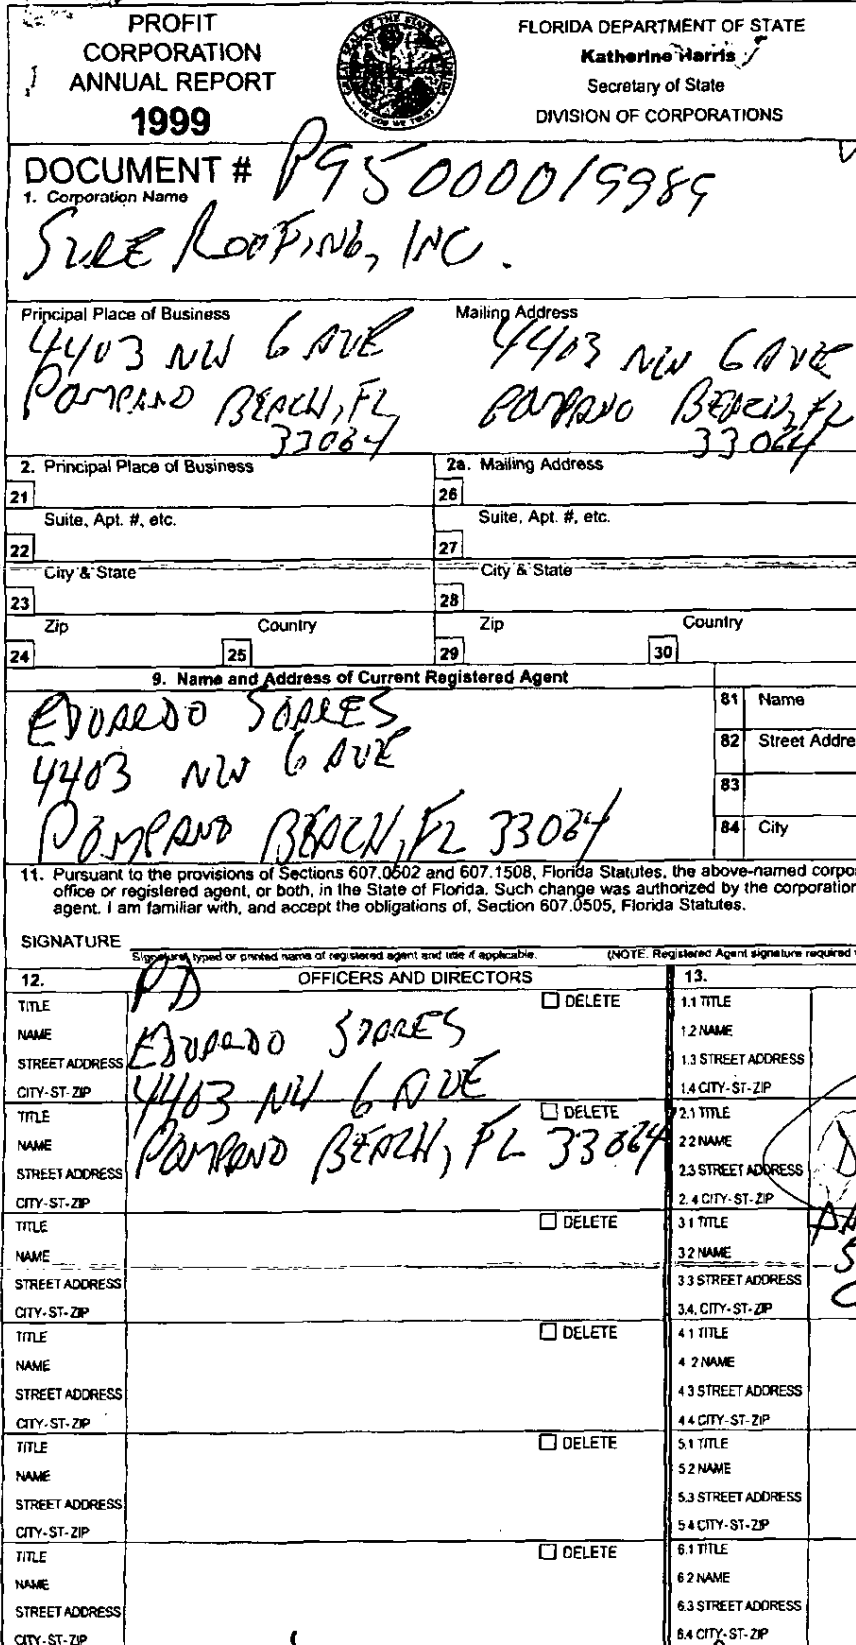 PROFIT
CORPORATION
ANNUAL REPORT
1999
GREAT SEAL OF THE STATE OF FLORIDA
IN GOD WE TRUST
FLORIDA DEPARTMENT OF STATE
Katherine Harris
Secretary of State
DIVISION OF CORPORATIONS
DOCUMENT # P95000019989
1. Corporation Name
SURE ROOFING, INC.
Principal Place of Business
4403 NW 6 AVE
POMPANO BEACH, FL
33064
Mailing Address
4403 NW 6 AVE
POMPANO BEACH, FL
33064
2. Principal Place of Business
2a. Mailing Address
21
26
Suite, Apt. #, etc.
Suite, Apt. #, etc.
22
27
City & State
City & State
23
28
Zip
Country
Zip
Country
24
25
29
30
9. Name and Address of Current Registered Agent
EDUARDO SOARES
4403 NW 6 AVE
POMPANO BEACH, FL 33064
81 Name
82 Street Addre
83
84 City
11. Pursuant to the provisions of Sections 607.0502 and 607.1508, Florida Statutes, the above-named corpo
office or registered agent, or both, in the State of Florida. Such change was authorized by the corporation
agent. I am familiar with, and accept the obligations of, Section 607.0505, Florida Statutes.
SIGNATURE
Signature, typed or printed name of registered agent and title if applicable.
(NOTE. Registered Agent signature required
12. OFFICERS AND DIRECTORS
13.
TITLE PD DELETE
NAME EDUARDO SOARES
STREET ADDRESS 4403 NW 6 AVE
CITY-ST-ZIP POMPANO BEACH, FL 33064
1.1 TITLE
1.2 NAME
1.3 STREET ADDRESS
1.4 CITY-ST-ZIP
TITLE DELETE
NAME
STREET ADDRESS
CITY-ST-ZIP
2.1 TITLE
2.2 NAME
2.3 STREET ADDRESS
2.4 CITY-ST-ZIP
TITLE DELETE
NAME
STREET ADDRESS
CITY-ST-ZIP
3.1 TITLE
3.2 NAME
3.3 STREET ADDRESS
3.4. CITY-ST-ZIP
TITLE DELETE
NAME
STREET ADDRESS
CITY-ST-ZIP
4.1 TITLE
4.2 NAME
4.3 STREET ADDRESS
4.4 CITY-ST-ZIP
TITLE DELETE
NAME
STREET ADDRESS
CITY-ST-ZIP
5.1 TITLE
5.2 NAME
5.3 STREET ADDRESS
5.4 CITY-ST-ZIP
TITLE DELETE
NAME
STREET ADDRESS
CITY-ST-ZIP
6.1 TITLE
6.2 NAME
6.3 STREET ADDRESS
6.4 CITY-ST-ZIP